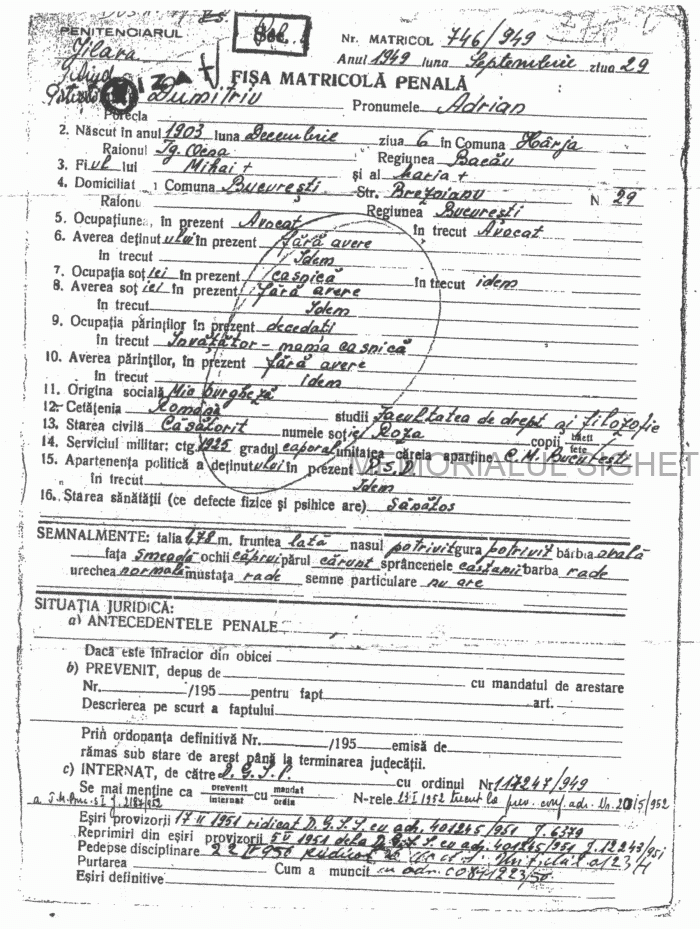 PENITENCIARUL
Jilava
Nr. MATRICOL 746/949
Anul 1949 luna Septembrie ziua 29
FIȘA MATRICOLĂ PENALĂ
Dumitriu Pronumele Adrian
Porecla
2. Născut în anul 1903 luna Decembrie ziua 6 în Comuna Hârja
Raionul Tg. Ocna Regiunea Bacău
3. Fiul lui Mihai + și al Maria +
4. Domiciliat Comuna București Str. Brezoianu N 29
Raionu Regiunea București
5. Ocupațiunea, în prezent Avocat în trecut Avocat
6. Averea deținutului în prezent fără avere
în trecut Idem
7. Ocupația soției în prezent casnică în trecut idem
8. Averea soției în prezent fără avere
în trecut Idem
9. Ocupația părinților în prezent decedati
în trecut Invățător - mama casnică
10. Averea părinților, în prezent fără avere
în trecut idem
11. Origina socială Mic burgheză
12. Cetățenia Română studii Facultatea de drept și filozofie
13. Starea civilă Căsătorit numele soției Roza copii băeți fete
14. Serviciul militar: ctg. 1925 gradul caporal unitatea căreia aparține C.M. București
15. Apartenența politică a deținutului în prezent P.S.D
MEMORIALUL SIGHET
În trecut Idem
16. Starea sănătății (ce defecte fizice și psihice are) Sănătos
SEMNALMENTE: talia 1,78 m. fruntea lată nasul potrivit gura potrivit bărbia ovală
fața smeadă ochii căprui părul cărunt sprâncenele castanii barba rade
urechea normală mustața rade semne particulare nu are
SITUAȚIA JURIDICĂ:
a) ANTECEDENTELE PENALE
Dacă este infractor din obicei
b) PREVENIT, depus de cu mandatul de arestare
Nr. /195 pentru fapt art.
Descrierea pe scurt a faptului
Prin ordonanța definitivă Nr. /195 emisă de
rămas sub stare de arest până la terminarea judecății.
c) INTERNAT, de către D.G.S.P. cu ordinul Nr 117247/949
Se mai menține ca prevenit internat cu mandat ordin N-rele 1952 trecut la prev. conf. adr. Nr.
Eșiri provizorii 17 II 1951 ridicat D.G.S.S. cu adr. 401245/951 J. 6379
Reprimiri din eșiri provizorii 5 V 1951 dela D.G.S.S. cu adr. 401245/951 J. 12243/951
Pedepse disciplinare
Purtarea Cum a muncit
Eșiri definitive